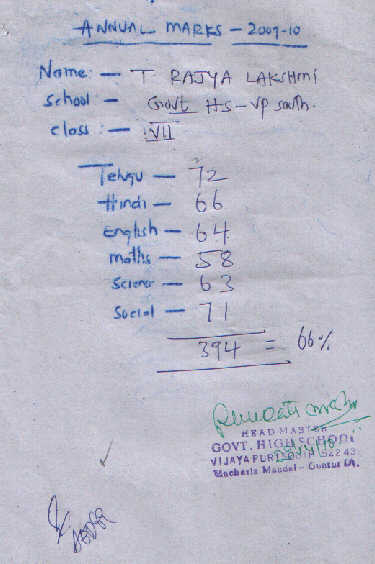 ANNUAL MARKS - 2009-10
Name: - T RAJYA LAKSHMI
School - Govt HS - VP south.
class: - VII
Telugu - 72
Hindi - 66
English - 64
maths - 58
Science - 63
Social - 71
394 = 66%
HEAD MASTER
GOVT. HIGH SCHOOL
VIJAYAPURI SOUTH 522 43
Macherla Mandal - Guntur